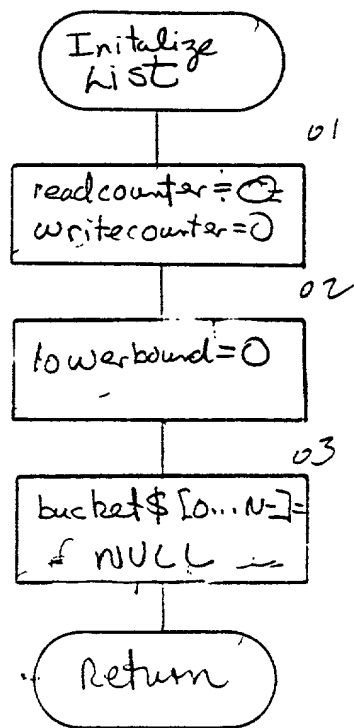 Initalize
List
01
readcounter=0
writecounter=0
02
lowerbound=0
03
bucket$[0...N-]=
NULL
Return